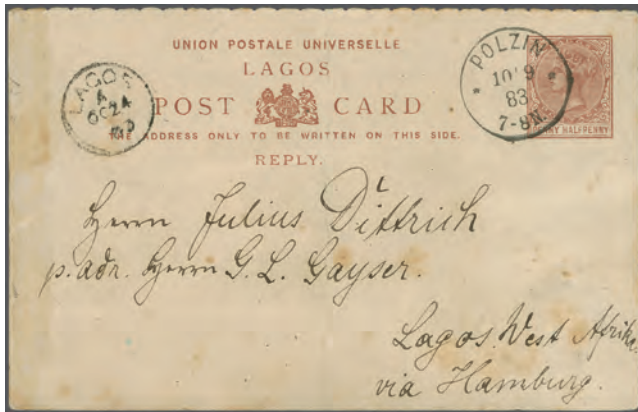 UNION POSTALE UNIVERSELLE
LAGOS
POST CARD.
THE ADDRESS ONLY TO BE WRITTEN ON THIS SIDE.
REPLY.
LAGOS
A
OC 24
83
* POLZIN *
10 9
83
7-8N.
PENNY HALFPENNY
Herrn Julius Dittrich
p. adr. Herrn G. L. Gayser.
Lagos West Afrika
via Hamburg.